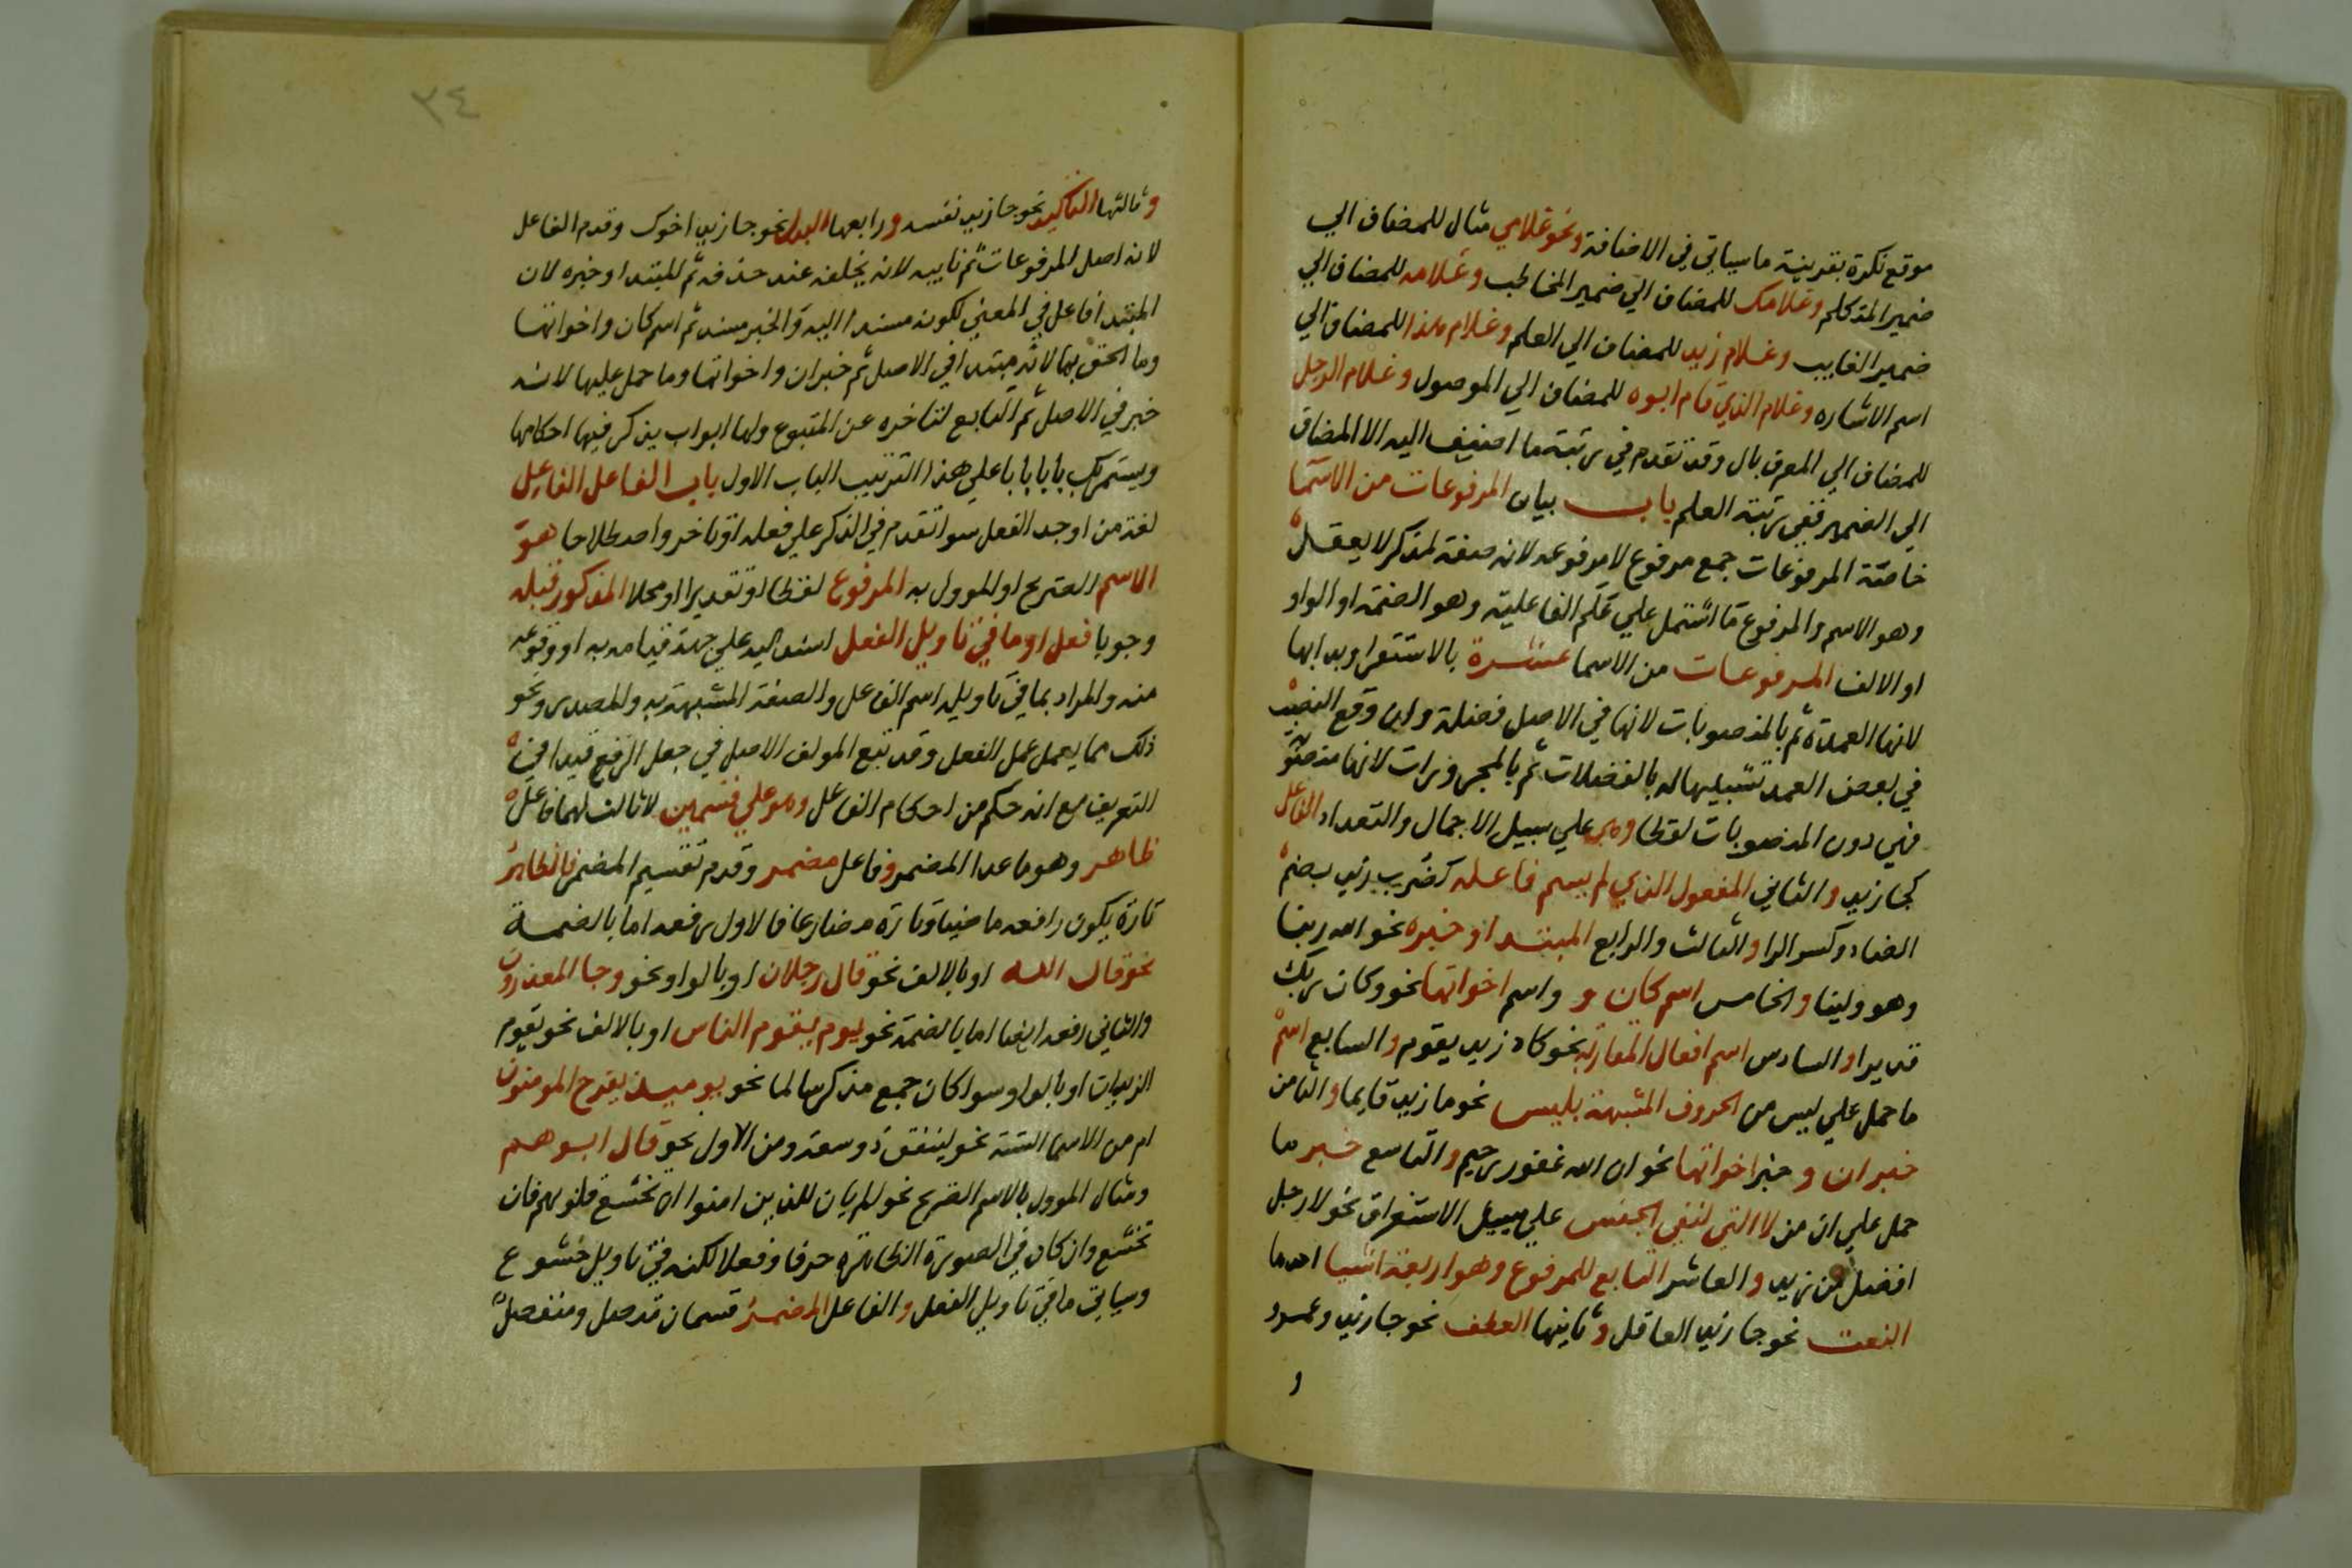 موقع نكرة بقرينة ما سياتي في الاضافة ونحو غلامي مثال للمضاف الي
ضمير المتكلم وغلامك للمضاف الي ضمير المخاطب وغلامه للمضاف الي
ضمير الغايب وغلام زيد للمضاف الي العلم وغلام هذا للمضاف الي
اسم الاشاره وغلام الذي قام ابوه للمضاف الي الموصول وغلام الرجل
للمضاف الي المعرف بال وقد تقدم في رتبة ما اضيف اليه الا المضاف
الي الضمير ففي رتبة العلم باب بيان المرفوعات من الاسما
خاصة المرفوعات جمع مرفوع لا مرفوعه لانه صفة لمذكر لا يعقل
وهو الاسم والمرفوع ما اشتمل علي علم الفاعلية وهو الضمة او الواو
او الالف المرفوعات من الاسما عشرة بالاستقرا وبدا بها
لانها العمدة ثم بالمنصوبات لانها في الاصل فضلة وان وقع النصب
في بعض العمد تشبيها له بالفضلات ثم بالمجرورات لانها منصوبة
فهي دون المنصوبات لفظا وهي علي سبيل الاجمال والتعداد الفاعل
كجا زيد والثاني المفعول الذي لم يسم فاعله كضرب زيد بضم
الضاد وكسر الرا والثالث والرابع المبتدا وخبره نحو الله ربنا
وهو ولينا والخامس اسم كان و واسم اخواتها نحو وكان ربك
قديرا والسادس اسم افعال المقاربة نحو كاد زيد يقوم والسابع اسم
ما حمل علي ليس من الحروف المشبهة بليس نحو ما زيد قايما والثامن
خبر ان و خبر اخواتها نحو ان الله غفور رحيم والتاسع خبر ما
حمل علي ان من لا التي لنفي الجنس علي سبيل الاستغراق نحو لا رجل
افضل من زيد والعاشر التابع للمرفوع وهو اربعة اشيا احدها
النعت نحو جا زيد العاقل وثانيها العطف نحو جا زيد وعمرو
و
٣٤
وثالثها التاكيد نحو جا زيد نفسه ورابعها البدل نحو جا زيد اخوك وقدم الفاعل
لانه اصل المرفوعات ثم نايبه لانه يخلفه عند حذفه ثم المبتدا وخبره لان
المبتدا فاعل في المعني لكونه مسندا اليه والخبر مسند ثم اسم كان واخواتها
وما الحق بها لانه مبتدا في الاصل ثم خبر ان واخواتها وما حمل عليها لانه
خبر في الاصل ثم التابع لتاخره عن المتبوع ولها ابواب يذكر فيها احكامها
ويستمر بك بابا بابا علي هذا الترتيب الباب الاول باب الفاعل الفاعل
لغة من اوجد الفعل سوا تقدم في الذكر علي فعله او تاخر واصطلاحا هو
الاسم الصريح او الموول به المرفوع لفظا او تقديرا او محلا المذكور قبله
وجوبا فعل او ما في تاويل الفعل اسند اليه علي جهة قيامه به او وقوعه
منه والمراد بما في تاويله اسم الفاعل والصفة المشبهة به والمصدر ونحو
ذلك مما يعمل عمل الفعل وقد تبع المولف الاصل في جعل الرفع قيدا في
التعريف مع انه حكم من احكام الفاعل وهو علي قسمين لا ثالث لهما فاعل
ظاهر وهو ما عدا المضمر وفاعل مضمر وقدم تقسيم المضمر فالظاهر
تارة يكون رافعه ماضيا وتارة مضارعا فالاول رفعه اما بالضمة
نحو قال الله او بالالف نحو قال رجلان او بالواو نحو وجا المعذرون
والثاني رفعه ايضا اما بالضمة نحو يوم يقوم الناس او بالالف نحو يقوم
الزيدان او بالواو سوا كان جمع مذكر سالما نحو يوميذ يفرح المومنون
ام من الاسما الستة نحو لينفق ذو سعة ومن الاول نحو قال ابوهم
ومثال الموول بالاسم الصريح نحو الم يان للذين امنوا ان تخشع قلوبهم فان
تخشع وان كان في الصورة الظاهرة حرفا وفعلا لكنه في تاويل خشوع
وسياتي ما في تاويل الفعل والفاعل المضمر قسمان متصل ومنفصل